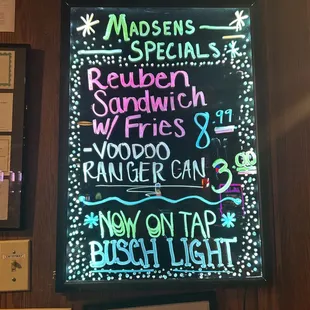 MADSENS
SPECIALS
Reuben
Sandwich
w/ Fries 8.99
-VOODOO
RANGER CAN 3.00
NOW ON TAP
BUSCH LIGHT